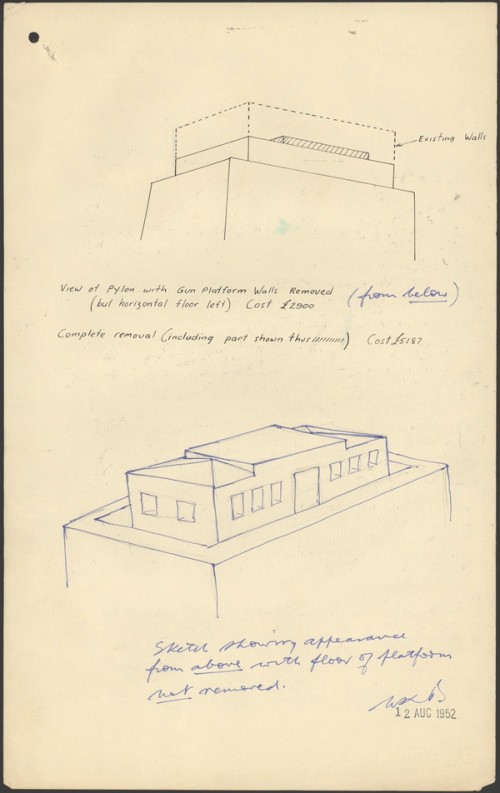 Existing Walls
View of Pylon with Gun Platform Walls Removed (from below)
(but horizontal floor left) Cost £2900
Complete removal (including part shown thus //////////) Cost £5187
Sketch showing appearance
from above with floor of platform
not removed.
12 AUG 1952